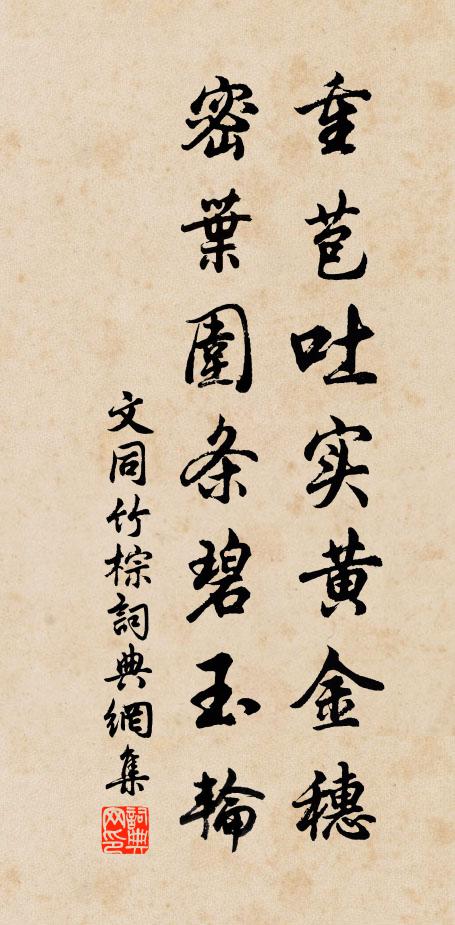 重苞吐实黄金穗
密葉圍条碧玉輪
文同竹棕詞典網集
詞典网印